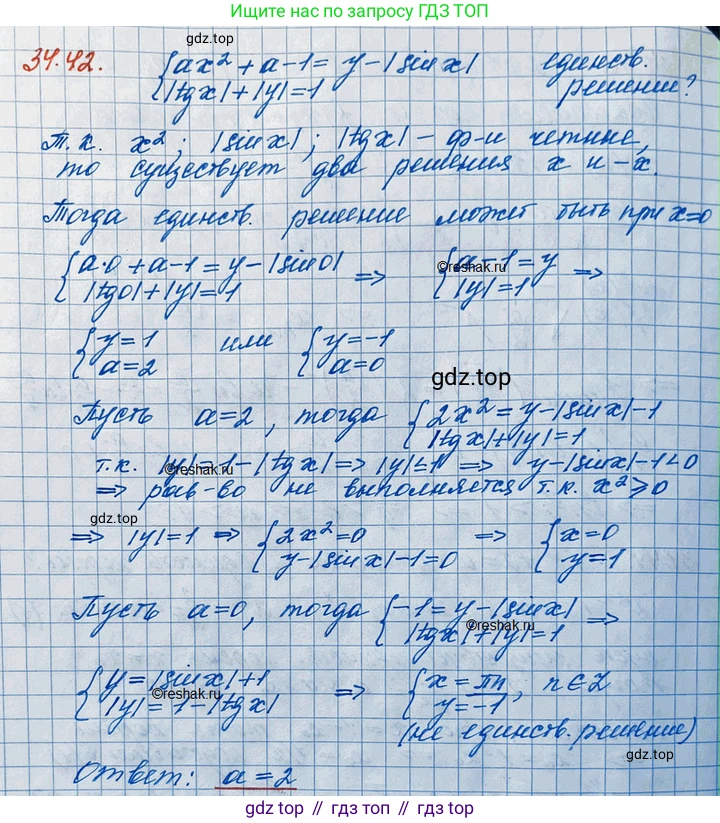 Ищите нас по запросу ГДЗ ТОП
34.42. { ax² + a - 1 = y - |sin x| единств.
|tg x| + |y| = 1 решение?
gdz.top
Т.к. x²; |sin x|; |tg x| - ф-и четные,
то существует два решения x и -x.
Тогда единств. решение может быть при x=0
{ a·0 + a - 1 = y - |sin 0| => { a - 1 = y =>
|tg 0| + |y| = 1 |y| = 1
©reshak.ru
{ y = 1 или { y = -1
a = 2 a = 0
gdz.top
Пусть a = 2, тогда { 2x² = y - |sin x| - 1
|tg x| + |y| = 1
т.к. |y| = 1 - |tg x| => |y| ≤ 1 => y - |sin x| - 1 < 0
©reshak.ru
=> рав-во не выполняется т.к. x² ≥ 0
gdz.top
=> |y| = 1 => { 2x² = 0 => { x = 0
y - |sin x| - 1 = 0 y = 1
Пусть a = 0, тогда { -1 = y - |sin x| =>
|tg x| + |y| = 1
©reshak.ru
{ y = |sin x| + 1 => { x = πn, n ∈ Z
|y| = 1 - |tg x| y = -1
©reshak.ru
(не единств. решение)
gdz.top
Ответ: a = 2
gdz.top // гдз топ // gdz.top